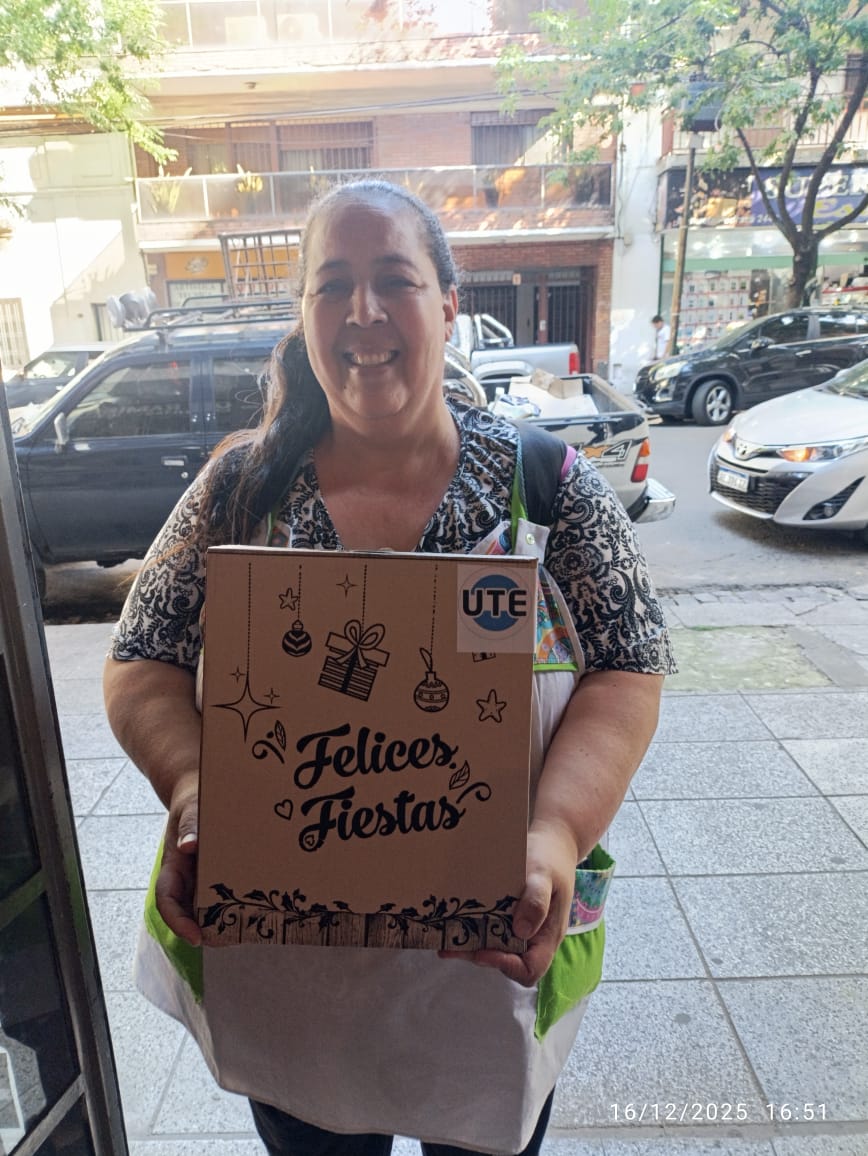 UTE
Felices
Fiestas
4x4
16/12/2025 16:51